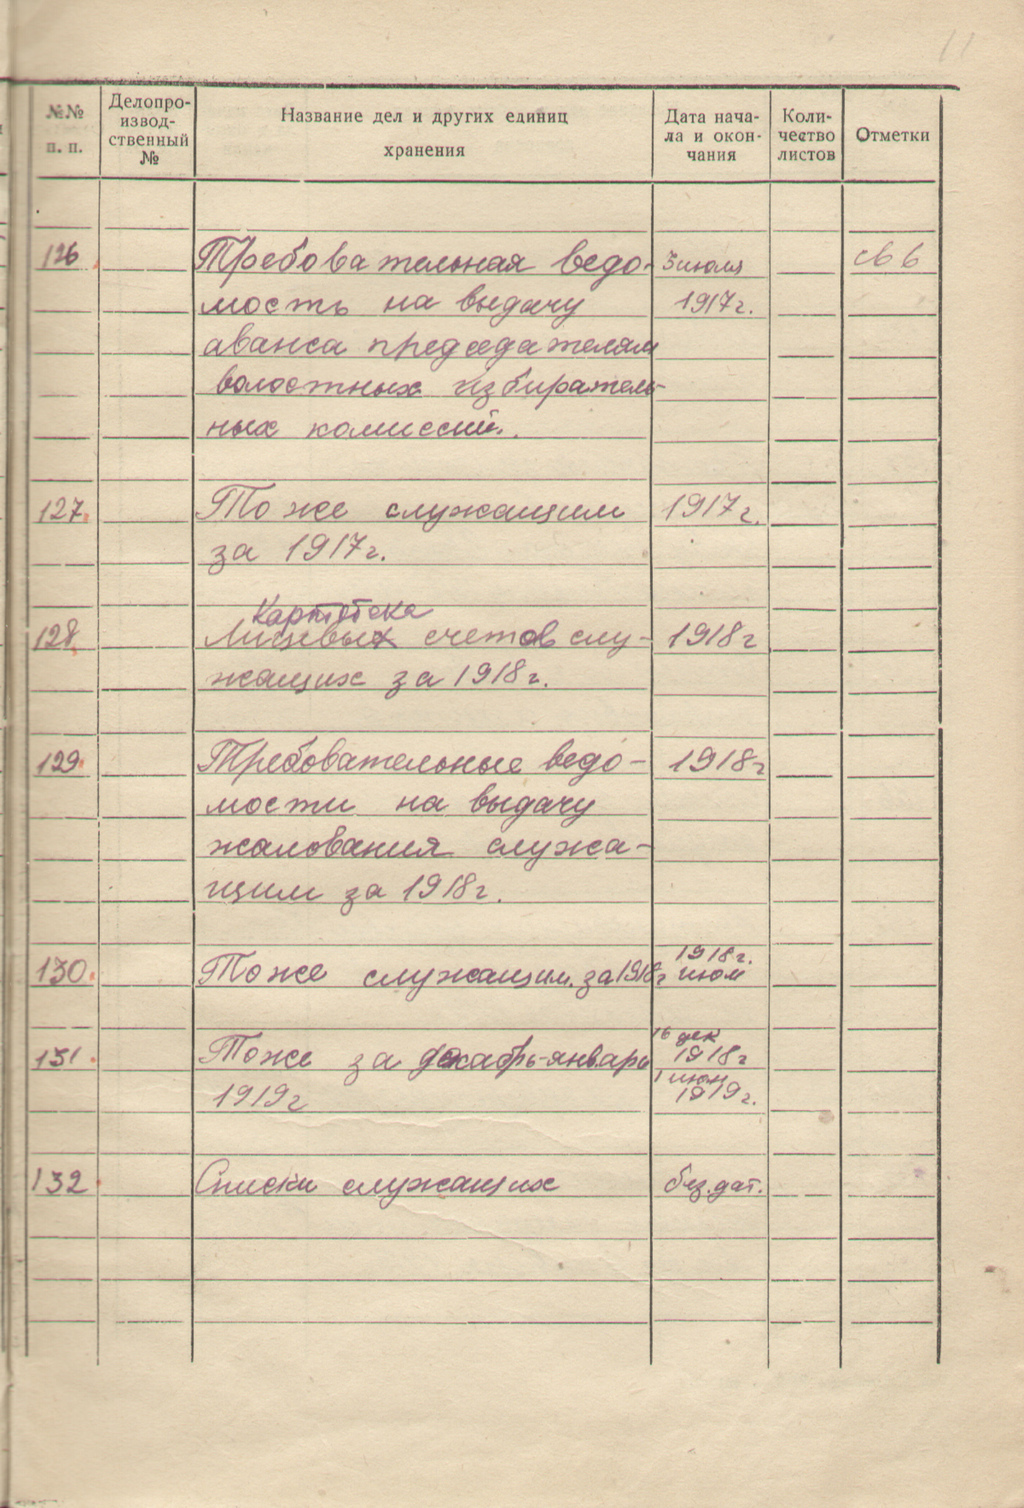 11
№№ п. п.
Делопро-
извод-
ственный
№
Название дел и других единиц
хранения
Дата нача-
ла и окон-
чания
Коли-
чество
листов
Отметки
126 Требовательная ведо- 3 июля св 6
мость на выдачу 1917г.
аванса председателям
волостных избиратель-
ных комиссий.
127. То же служащим 1917г.
за 1917г.
Картотека
128. Лицевых счетов слу- 1918г
жащих за 1918г.
129. Требовательные ведо- 1918г
мости на выдачу
жалования служа-
щим за 1918г.
1918г.
130. Тоже служащим. за 1918г июм
16 дек
131. Тоже за декабрь-январь 1918г
1 июн
1919г 1919г.
132 Списки служащих без.дат.